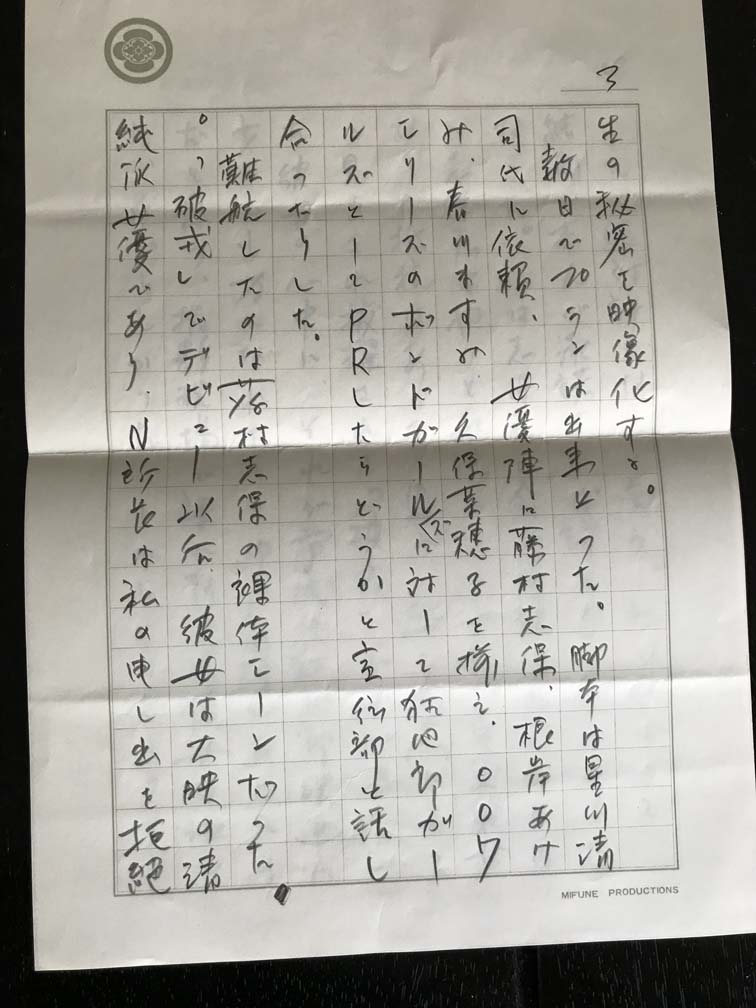 3
生の秘密を映像化する。
数日でプランは出来上った。脚本は星川清
司氏に依頼、女優陣に藤村志保、根岸あけ
み、春川ますみ、久保菜穂子を揃え、007
シリーズのボンドガールズに対して狂四郎ガー
ルズとしてPRしたらどうかと宣伝部と話し
合ったりした。
難航したのは藤村志保の裸体シーンだった
。「破戒」でデビュー以来、彼女は大映の清
純派女優であり、N所長は私の申し出を拒絶
MIFUNE PRODUCTIONS